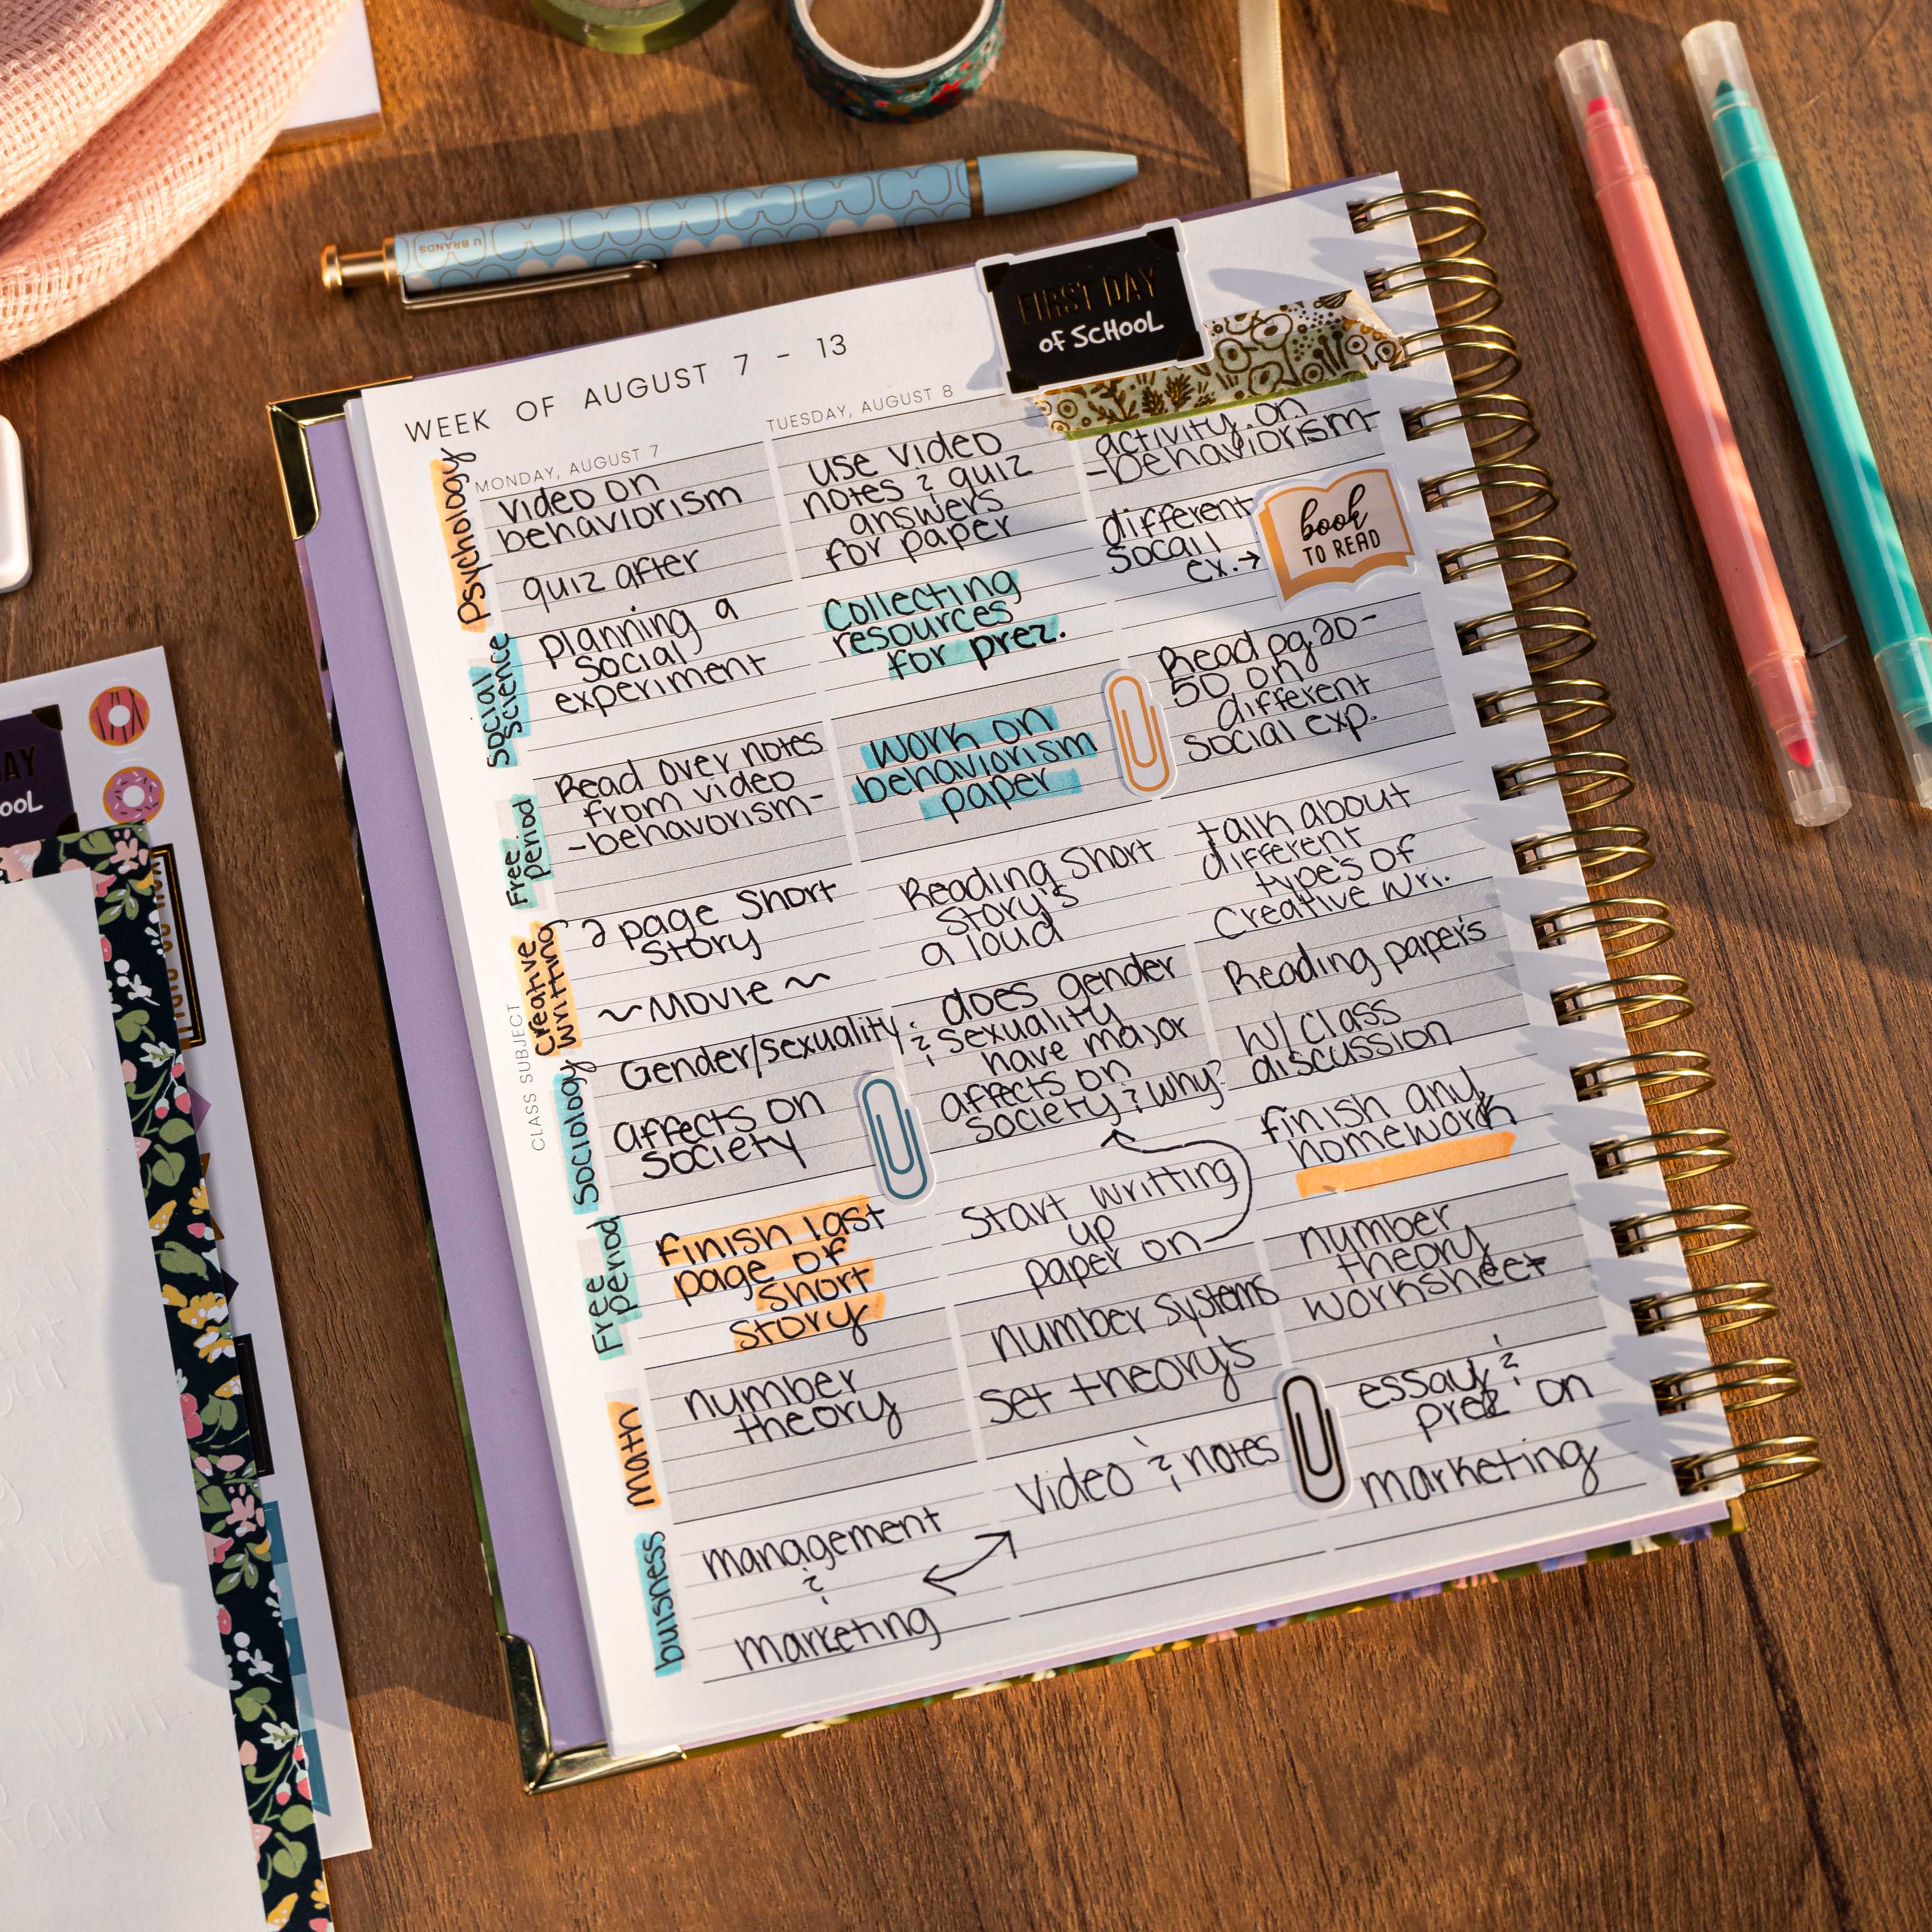 U BRANDS
FIRST DAY
of SCHOOL
WEEK OF AUGUST 7 - 13
MONDAY, AUGUST 7
TUESDAY, AUGUST 8
CLASS SUBJECT
Psychology
video on
behaviorism
quiz after
use video
notes & quiz
answers
for paper
activity on
-behaviorism-
different
socail
ex.→
book
TO READ
Social
Science
planning a
social
experiment
Collecting
resources
for prez.
Free
period
Read over notes
from video
-behavorism-
work on
behaviorism
paper
Read pg. 20-
50 on
different
social exp.
Creative
writting
2 page Short
Story
~Movie~
Reading Short
Story's
a loud
talk about
different
type's of
Creative wri.
Sociology
Gender/sexuality
affects on
society
does gender
& sexuality
have major
affects on
society & why?
Reading paper's
w/ class
discussion
Free
period
finish last
page of
short
story
Start writting
up
paper on
finish any
homework
math
number
theory
number systems
set theory's
number
theory
worksheet
buisness
management
&
marketing
video & notes
essay &
prez on
marketing
AY
OOL